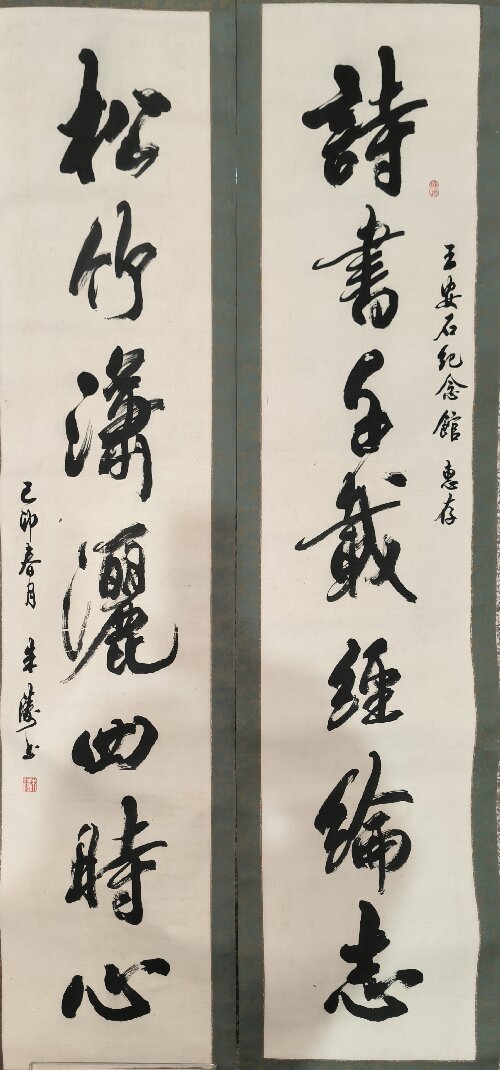 王安石纪念館 惠存
詩書千載經綸志
松竹瀟灑四時心
己卯春月